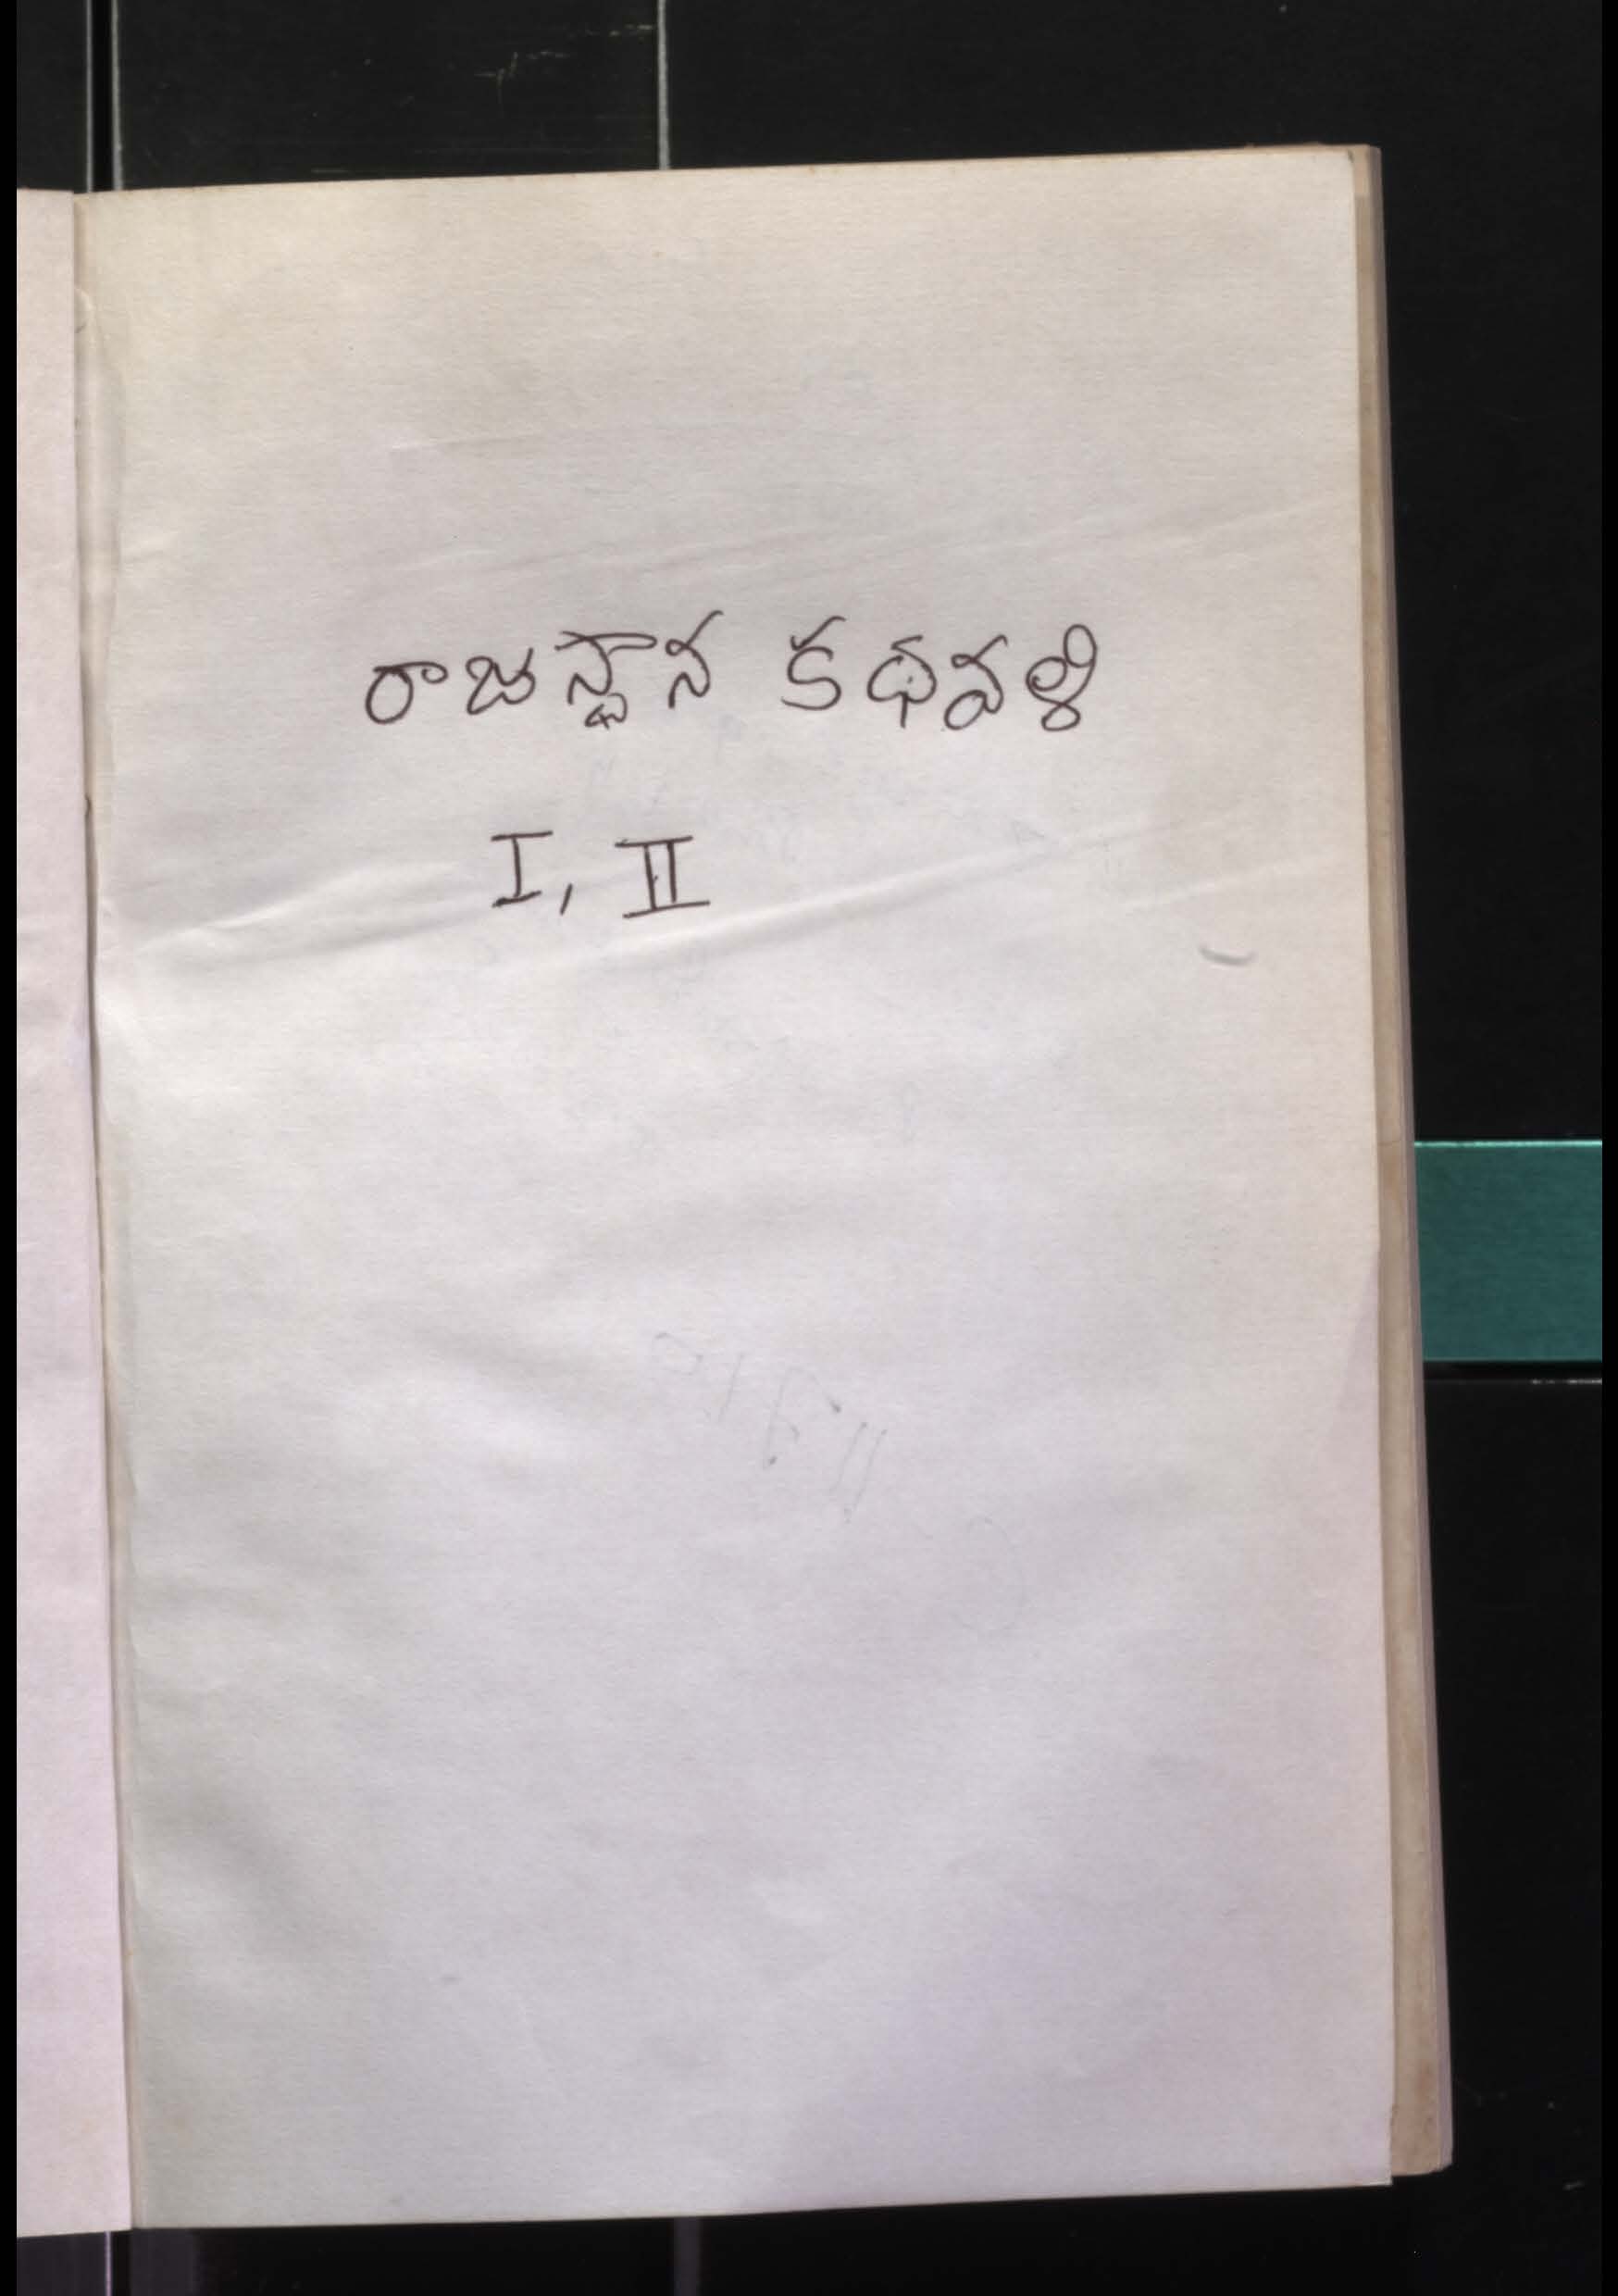 రాజస్థాన కథవళి
I, II